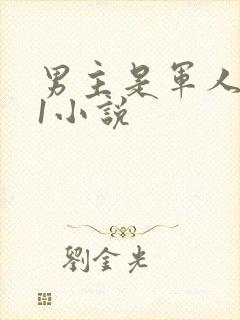 男主是軍人
1小說
劉金光